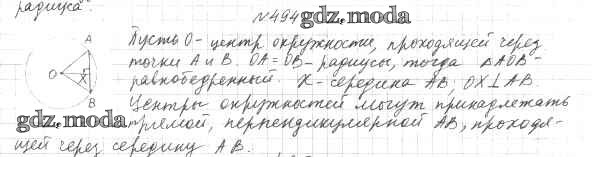 радиуса.
№494 gdz.moda
A
O
X
B
Пусть O - центр окружности, проходящей через
точки A и B. OA = OB - радиусы, тогда △AOB -
равнобедренный. X - середина AB; OX⊥AB.
Центры окружностей могут принадлежать
gdz.moda прямой, перпендикулярной AB, проходя-
щей через середину AB.